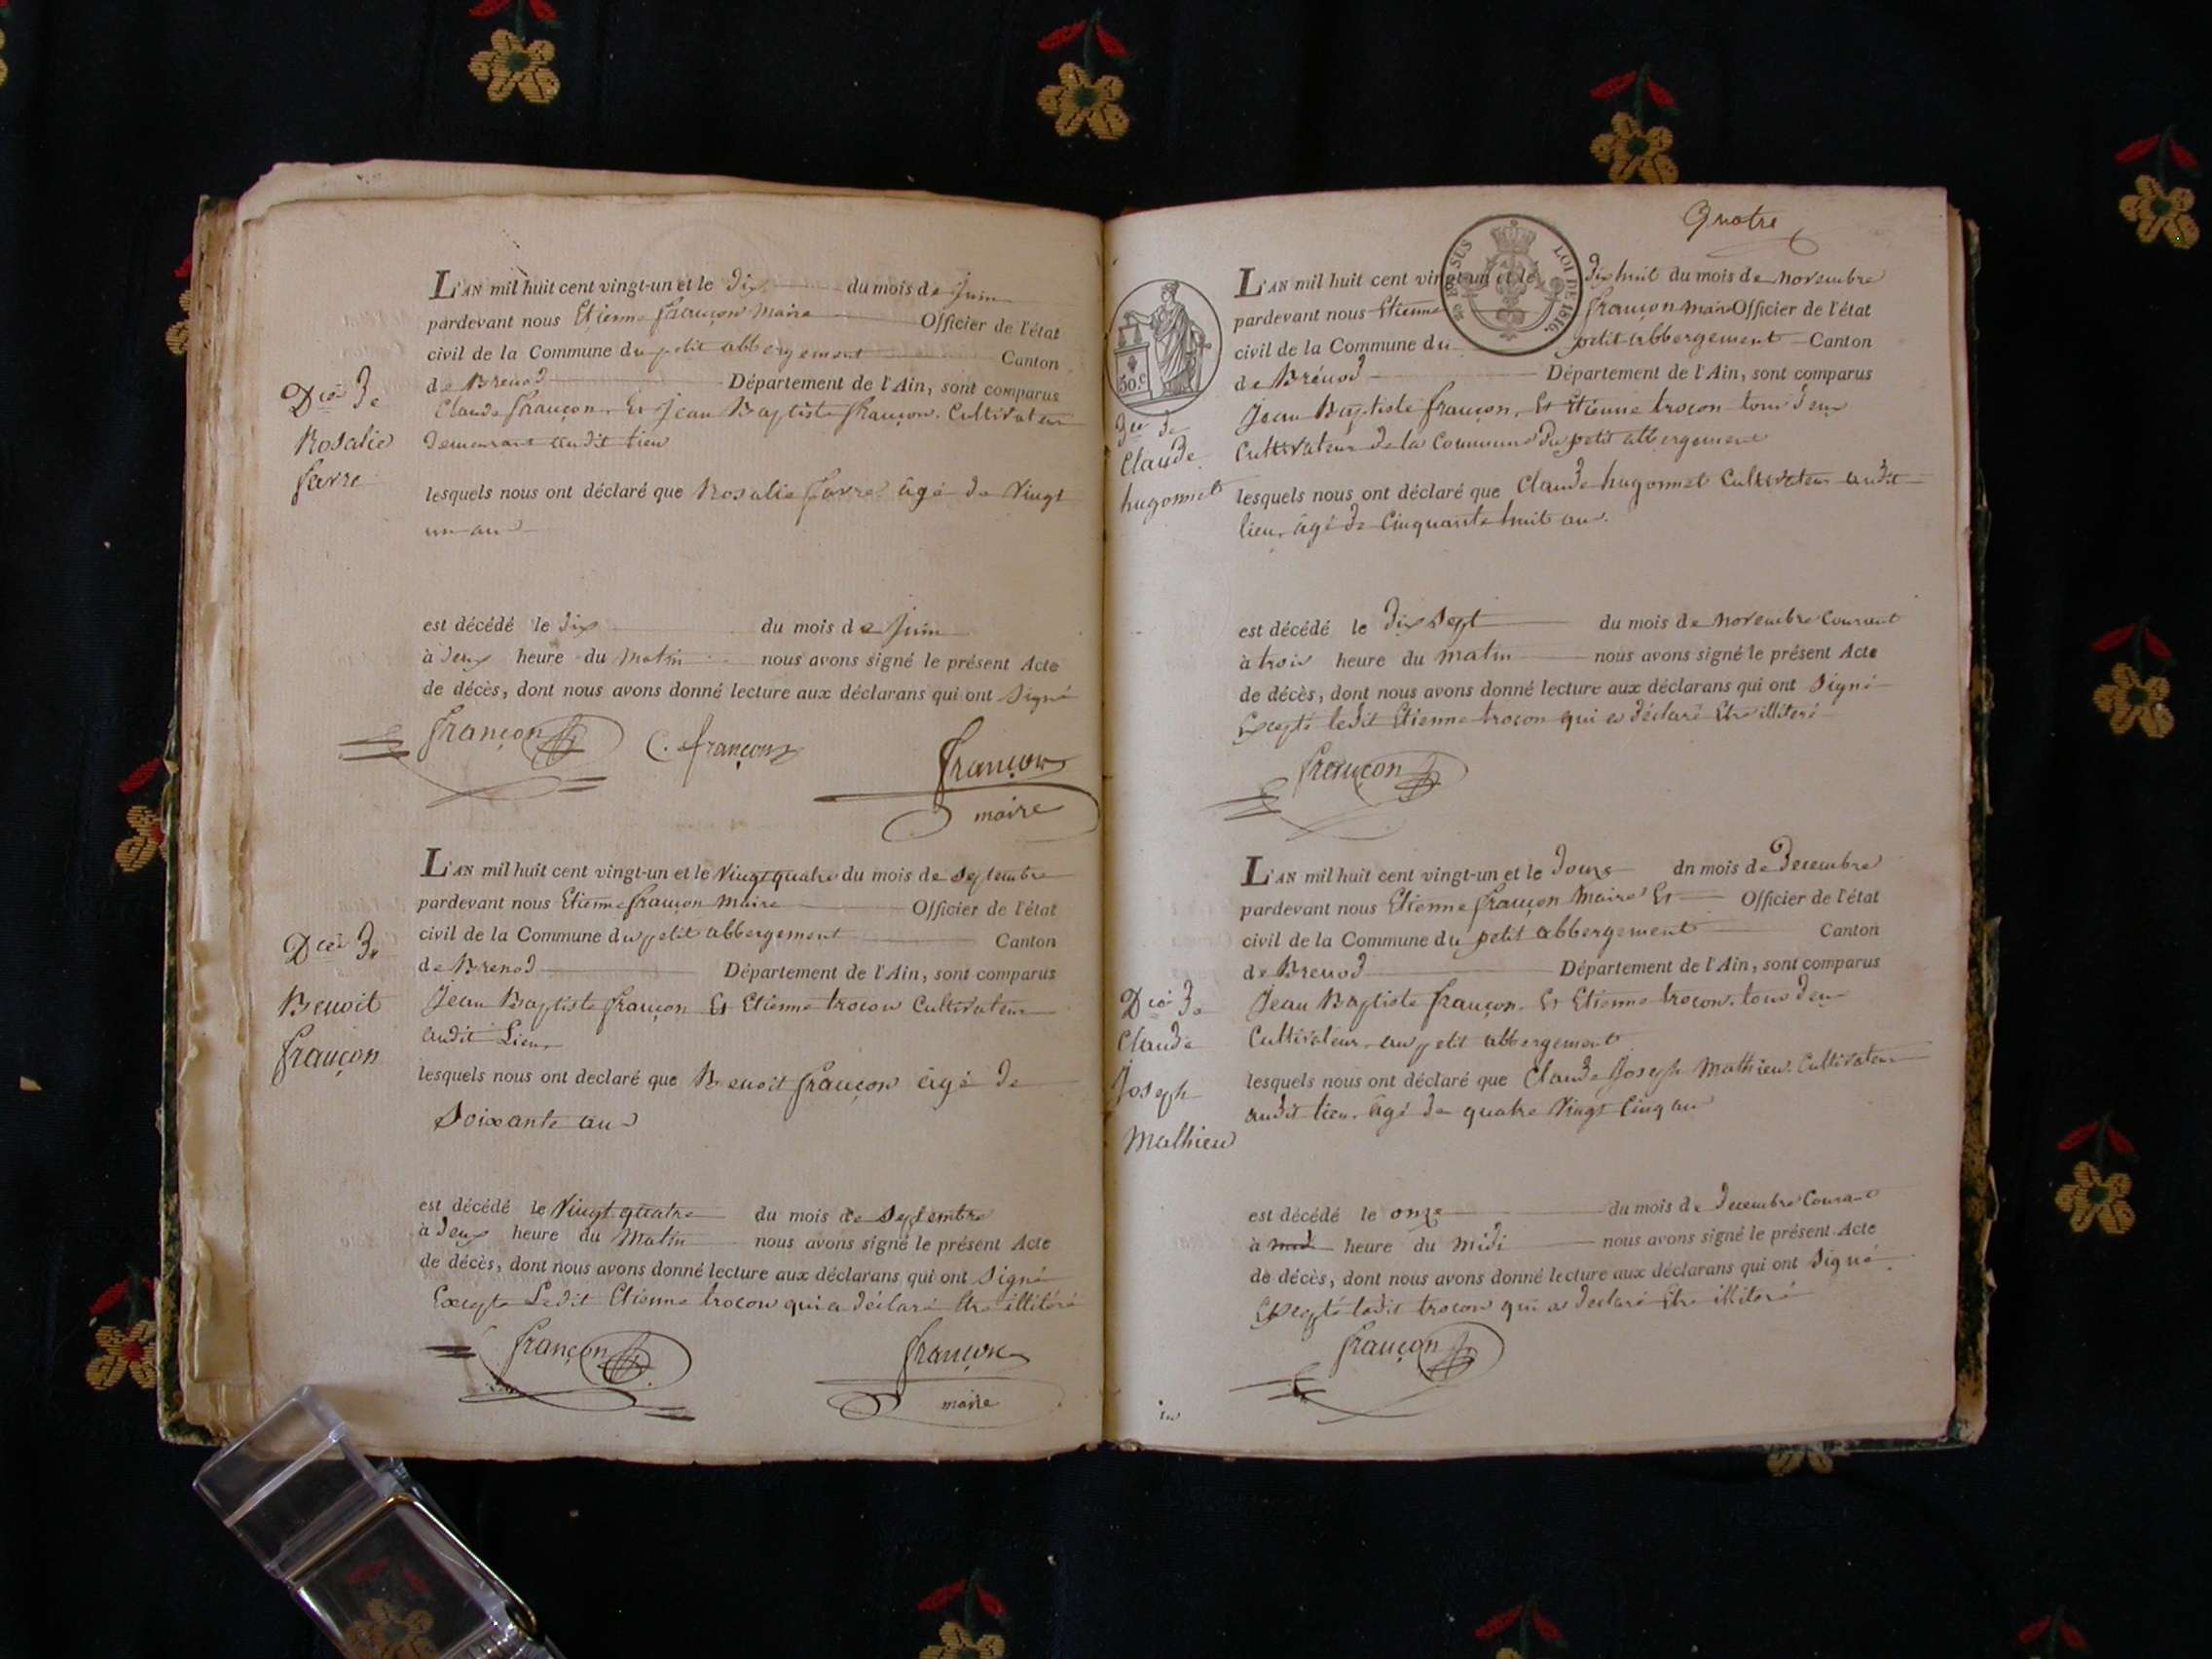 L'AN mil huit cent vingt-un et le dix du mois de juin
pardevant nous Etienne françon Maire Officier de l'état
civil de la Commune du petit abbergement Canton
de Brenod Département de l'Ain, sont comparus
Claude françon Et Jean Baptiste françon Cultivateur
demeurant audit lieu
Rosalie
favre
lesquels nous ont déclaré que Rosalie favre âgé de Vingt
un an
est décédé le dix du mois de juin
à deux heure du Matin nous avons signé le présent Acte
de décès, dont nous avons donné lecture aux déclarans qui ont signé
françon C. françon françon
maire
L'AN mil huit cent vingt-un et le Vingt quatre du mois de septembre
pardevant nous Etienne françon Maire Officier de l'état
civil de la Commune du petit abbergement Canton
de Brenod Département de l'Ain, sont comparus
Benoit
françon
Jean Baptiste françon Et Etienne trocon Cultivateur
audit Lieu
lesquels nous ont declaré que Benoit françon âgé de
Soixante an
est décédé le Vingt quatre du mois de septembre
à deux heure du Matin nous avons signé le présent Acte
de décès, dont nous avons donné lecture aux déclarans qui ont signé
Excepte Ledit Etienne trocon qui a déclaré Etre illitéré
françon françon
maire
Quatre
EN SUS LOI DE 1816.
50.c
L'AN mil huit cent vingt-un et le dix huit du mois de novembre
pardevant nous Etienne françon maire Officier de l'état
civil de la Commune du petit abbergement Canton
de Brénod Département de l'Ain, sont comparus
Jean Baptiste françon, Et Etienne trocon tous deux
Cultivateur de la Commune du petit abbergement
Claude
hugonnet
lesquels nous ont déclaré que Claude hugonnet Cultivateur audit
lieu, âgé de Cinquante huit an.
est décédé le dix sept du mois de novembre Courant
à trois heure du matin nous avons signé le présent Acte
de décès, dont nous avons donné lecture aux déclarans qui ont signé
Excepté ledit Etienne trocon qui a déclaré Etre illiteré
françon
L'AN mil huit cent vingt-un et le douze du mois de Decembre
pardevant nous Etienne françon Maire Et Officier de l'état
civil de la Commune du petit abbergement Canton
de Brenod Département de l'Ain, sont comparus
Claude
Joseph
Mathieu
Jean Baptiste françon, Et Etienne trocon, tous deux
Cultivateur au petit abbergement
lesquels nous ont déclaré que Claude Joseph Mathieu, Cultivateur
audit lieu, âgé de quatre Vingt Cinq an
est décédé le onze du mois de Decembre Courant
à midi heure du midi nous avons signé le présent Acte
de décès, dont nous avons donné lecture aux déclarans qui ont signé
Excepté ledit trocon qui a declaré Etre illiteré
françon